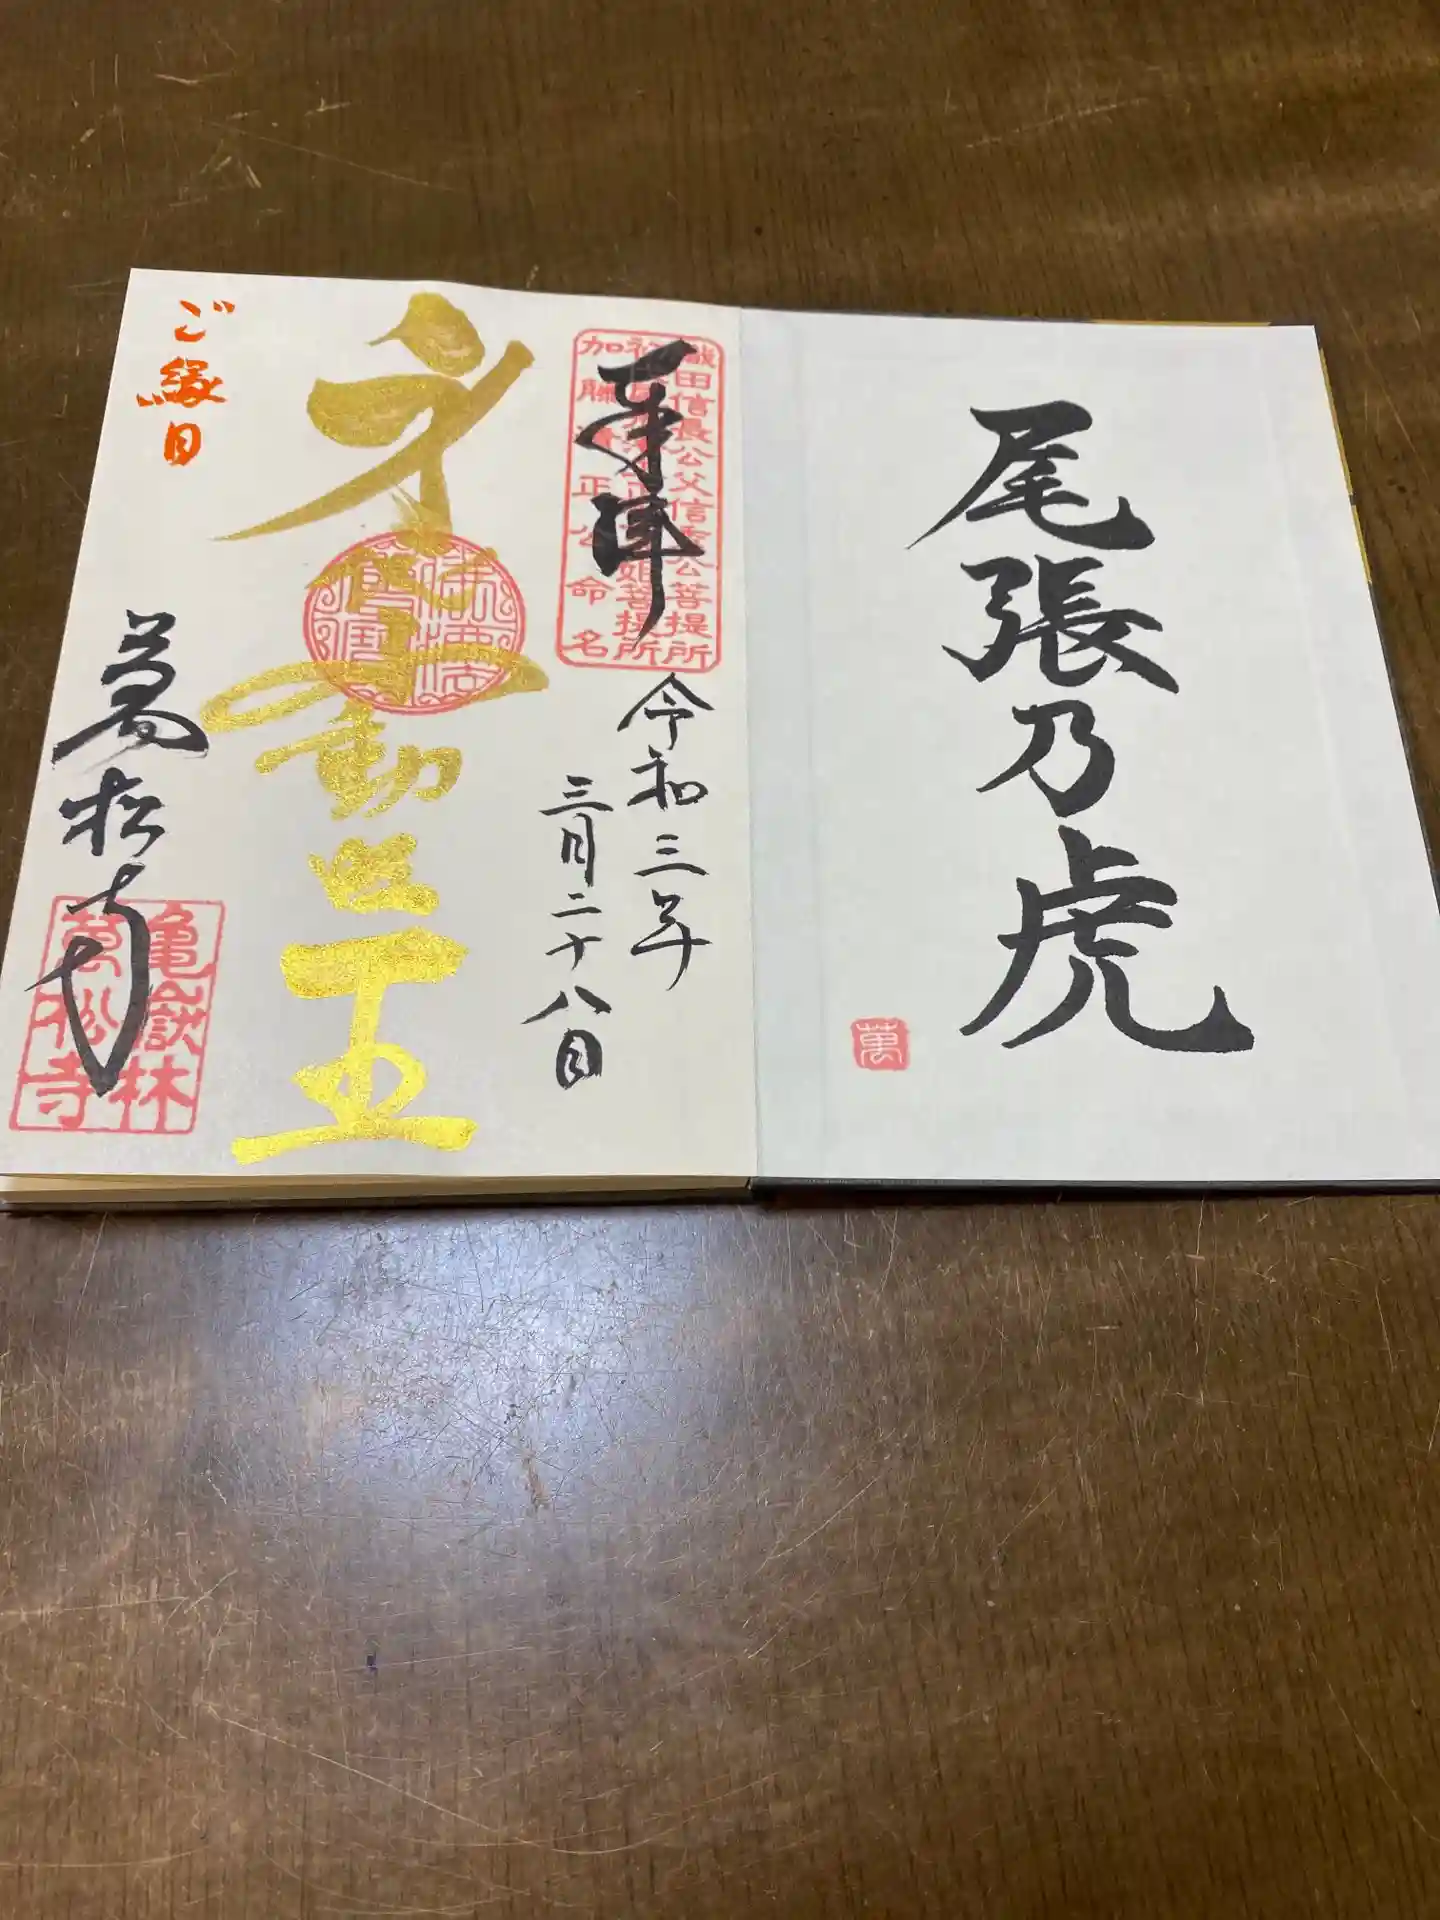 尾張乃虎
萬
奉拝
織田信長公父信秀公菩提所
加藤清正公命名
令和三年
三月二十八日
不動明王
ご縁日
萬松寺
亀嶽林
萬松寺